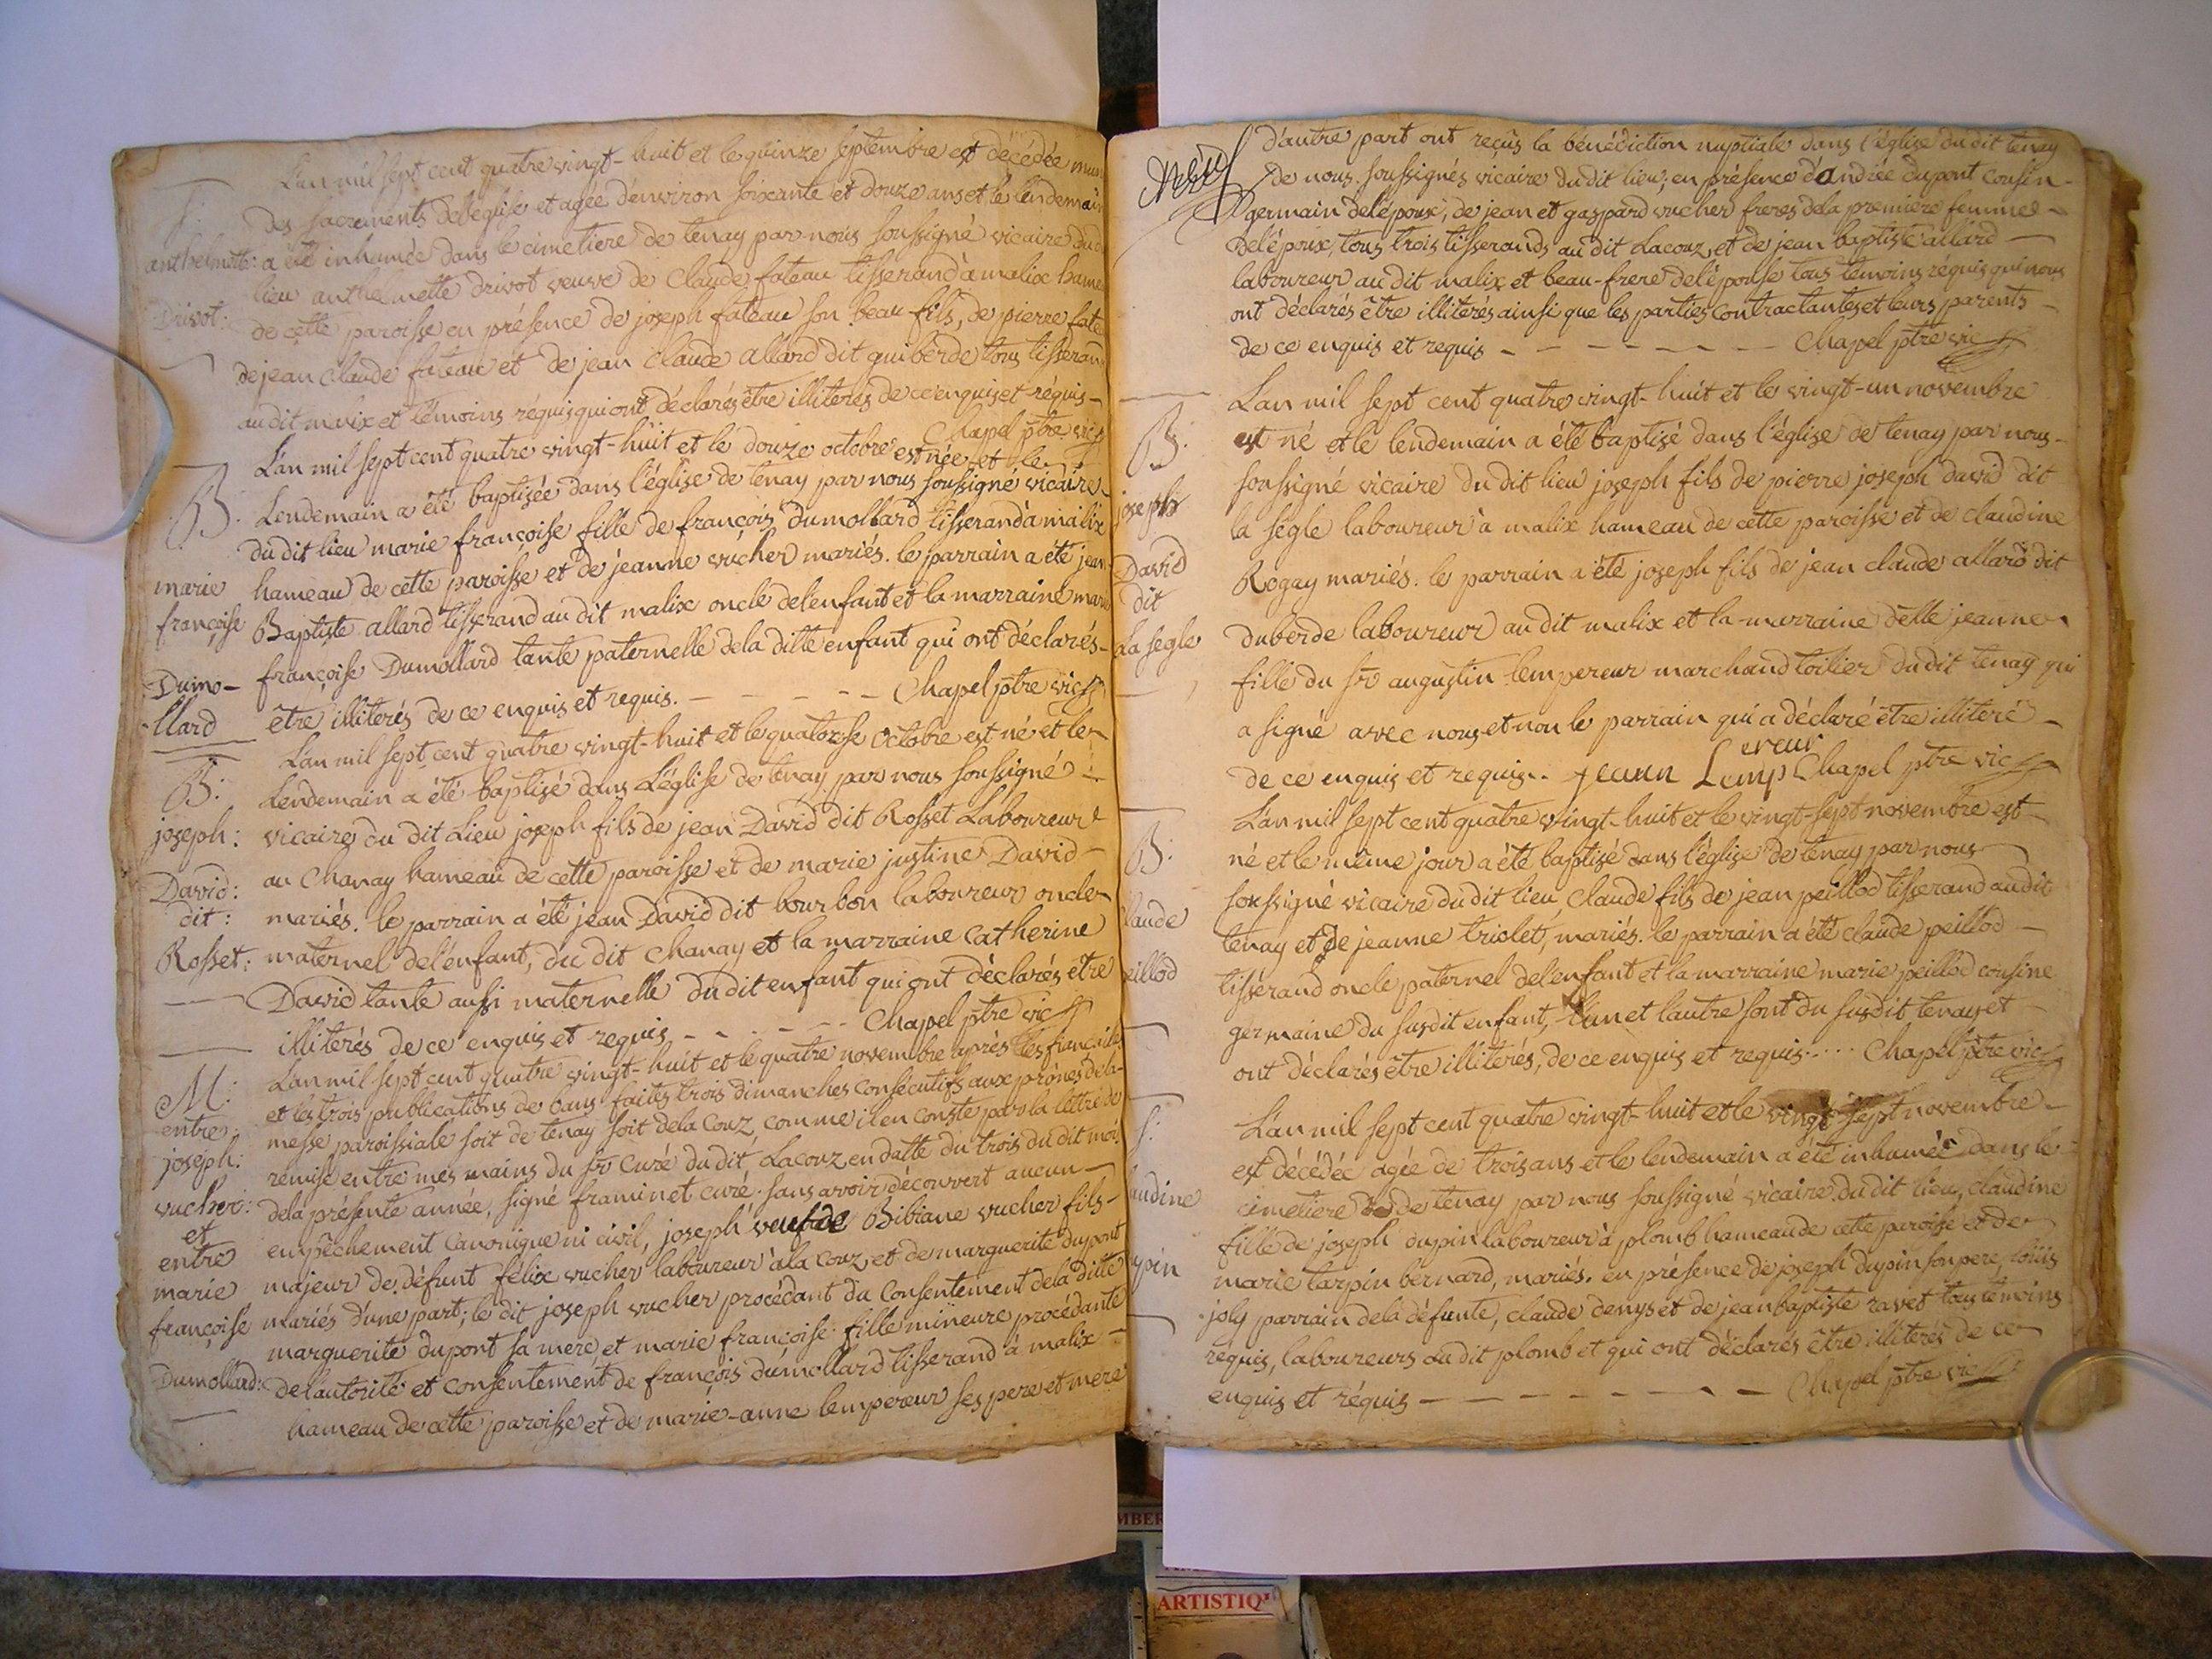 L'an mil sept cent quatre vingt-huit et le quinze septembre est décédée munie
S:
des sacrements de l'eglise et agée d'environ soixante et douze ans et le lendemain
anthelmette: a été inhumée dans le cimetiere de tenay par nous soussigné vicaire du dit
lieu anthelmette drivot veuve de Claude fateau tisserand à malix hameau
Drivot:
de cette paroisse en présence de joseph fateau son beau fils, de pierre fateau
de jean claude fateau et de jean claude allard dit guiberde tous tisserands
au dit malix et témoins réquis qui ont déclarés être illiterés de ce enquis et réquis -
Chapel ptre vic
L'an mil sept cent quatre vingt-huit et le douze octobre est née et le
B:
Lendemain a été baptisée dans l'église de tenay par nous soussigné vicaire
du dit lieu marie françoise fille de françois dumollard tisserand à malix
marie hameau de cette paroisse et de jéanne vucher mariés. le parrain a été jean
françoise Baptiste allard tisserand au dit malix oncle de l'enfant et la marraine marie
Dumo- françoise Dumollard tante paternelle de la ditte enfant qui ont déclarés -
llard être illiterés de ce enquis et requis. - - - - - Chapel ptre vic
L'an mil sept cent quatre vingt-huit et le quatorse Octobre est né et le
B: Lendemain a été baptisé dans L'église de tenay par nous soussigné
joseph: vicaire du dit Lieu joseph fils de jean David dit Rosset Laboureur
David: au Chanay hameau de cette paroisse et de marie justine David -
dit: mariés. le parrain a été jean David dit bourbon laboureur oncle
Rosset: maternel de l'enfant, du dit Chanay et la marraine Catherine
David tante aussi maternelle du dit enfant qui ont déclarés être
illiterés de ce enquis et requis - - - - - Chapel ptre vic
M: L'an mil sept cent quatre vingt-huit et le quatre novembre après les fiançailles
entre: et les trois publications de bans faites trois dimanches consécutifs aux prônes de la
joseph: messe paroissiale soit de tenay soit de la Couz, comme il en conste par la lettre de
vucher: remise entre mes mains du sr Curé du dit Lacouz en datte du trois du dit mois
et de la présente année, signé framinet curé. sans avoir découvert aucun -
entre empêchement canonique ni civil, joseph veuf de Bibiane vucher fils -
marie majeur de défunt félix vucher laboureur à la Couz, et de marguerite dupont
françoise mariés d'une part; le dit joseph vucher procédant du Consentement de la ditte
marguerite dupont sa mere et marie françoise fille mineure procédante
Dumollard: de l'autorité et consentement de françois dumollard tisserand à malix -
hameau de cette paroisse et de marie-anne lempereur ses pere et mere
d'autre part ont reçûs la bénédiction nuptiale dans l'église du dit tenay
de nous soussignés vicaire du dit lieu, en présence d'andrée dupont cousin -
germain de l'époux, de jean et gaspard vucher freres de la premiere femme -
de l'époux, tous trois tisserands au dit Lacouz, et de jean baptiste allard -
laboureur au dit malix et beau-frere de l'épouse tous témoins réquis qui nous
ont déclarés être illiterés ainsi que les parties Contractantes et leurs parents -
de ce enquis et requis - - - - - - - - Chapel ptre vic
L'an mil sept cent quatre vingt-huit et le vingt-un novembre
B: est né et le lendemain a été baptisé dans l'église de tenay par nous -
joseph soussigné vicaire du dit lieu joseph fils de pierre joseph david dit
la ségle laboureur à malix hameau de cette paroisse et de claudine
David Rogay mariés. le parrain a été joseph fils de jean claude allard dit
dit
La ségle duberde laboureur au dit malix et la marraine delle jeanne
fille du sr augustin lempereur marchand toilier du dit tenay qui
a signé avec nous et non le parrain qui a déclaré être illiteré -
de ce enquis et requis.. jeann Lempereur Chapel ptre vic
L'an mil sept cent quatre vingt-huit et le vingt-sept novembre est -
B: né et le même jour a été baptisé dans l'église de tenay par nous
laude soussigné vicaire du dit lieu, Claude fils de jean peillod tisserand au dit
tenay et de jeanne triolet, mariés. le parrain a été claude peillod -
eillod tisserand oncle paternel de l'enfant et la marraine marie peillod cousine
germaine du susdit enfant, l'un et l'autre sont du susdit tenay et
ont déclarés être illiterés, de ce enquis et requis..... Chapel ptre vic
S: L'an mil sept cent quatre vingt-huit et le vingt sept novembre -
est décédée agée de trois ans et le lendemain a été inhumée dans le
udine cimetiere de tenay par nous soussigné vicaire du dit lieu, claudine
fille de joseph dupin laboureur à plomb hameau de cette paroisse et de
upin marie tarpin bernard, mariés. en présence de joseph dupin son pere, loüis
joly parrain de la défunte, claude denys et de jean baptiste ravet tous témoins
réquis, laboureurs du dit plomb et qui ont déclarés être illiterés de ce
enquis et réquis - - - - - - - Chapel ptre vic
MBER
ARTISTIQ